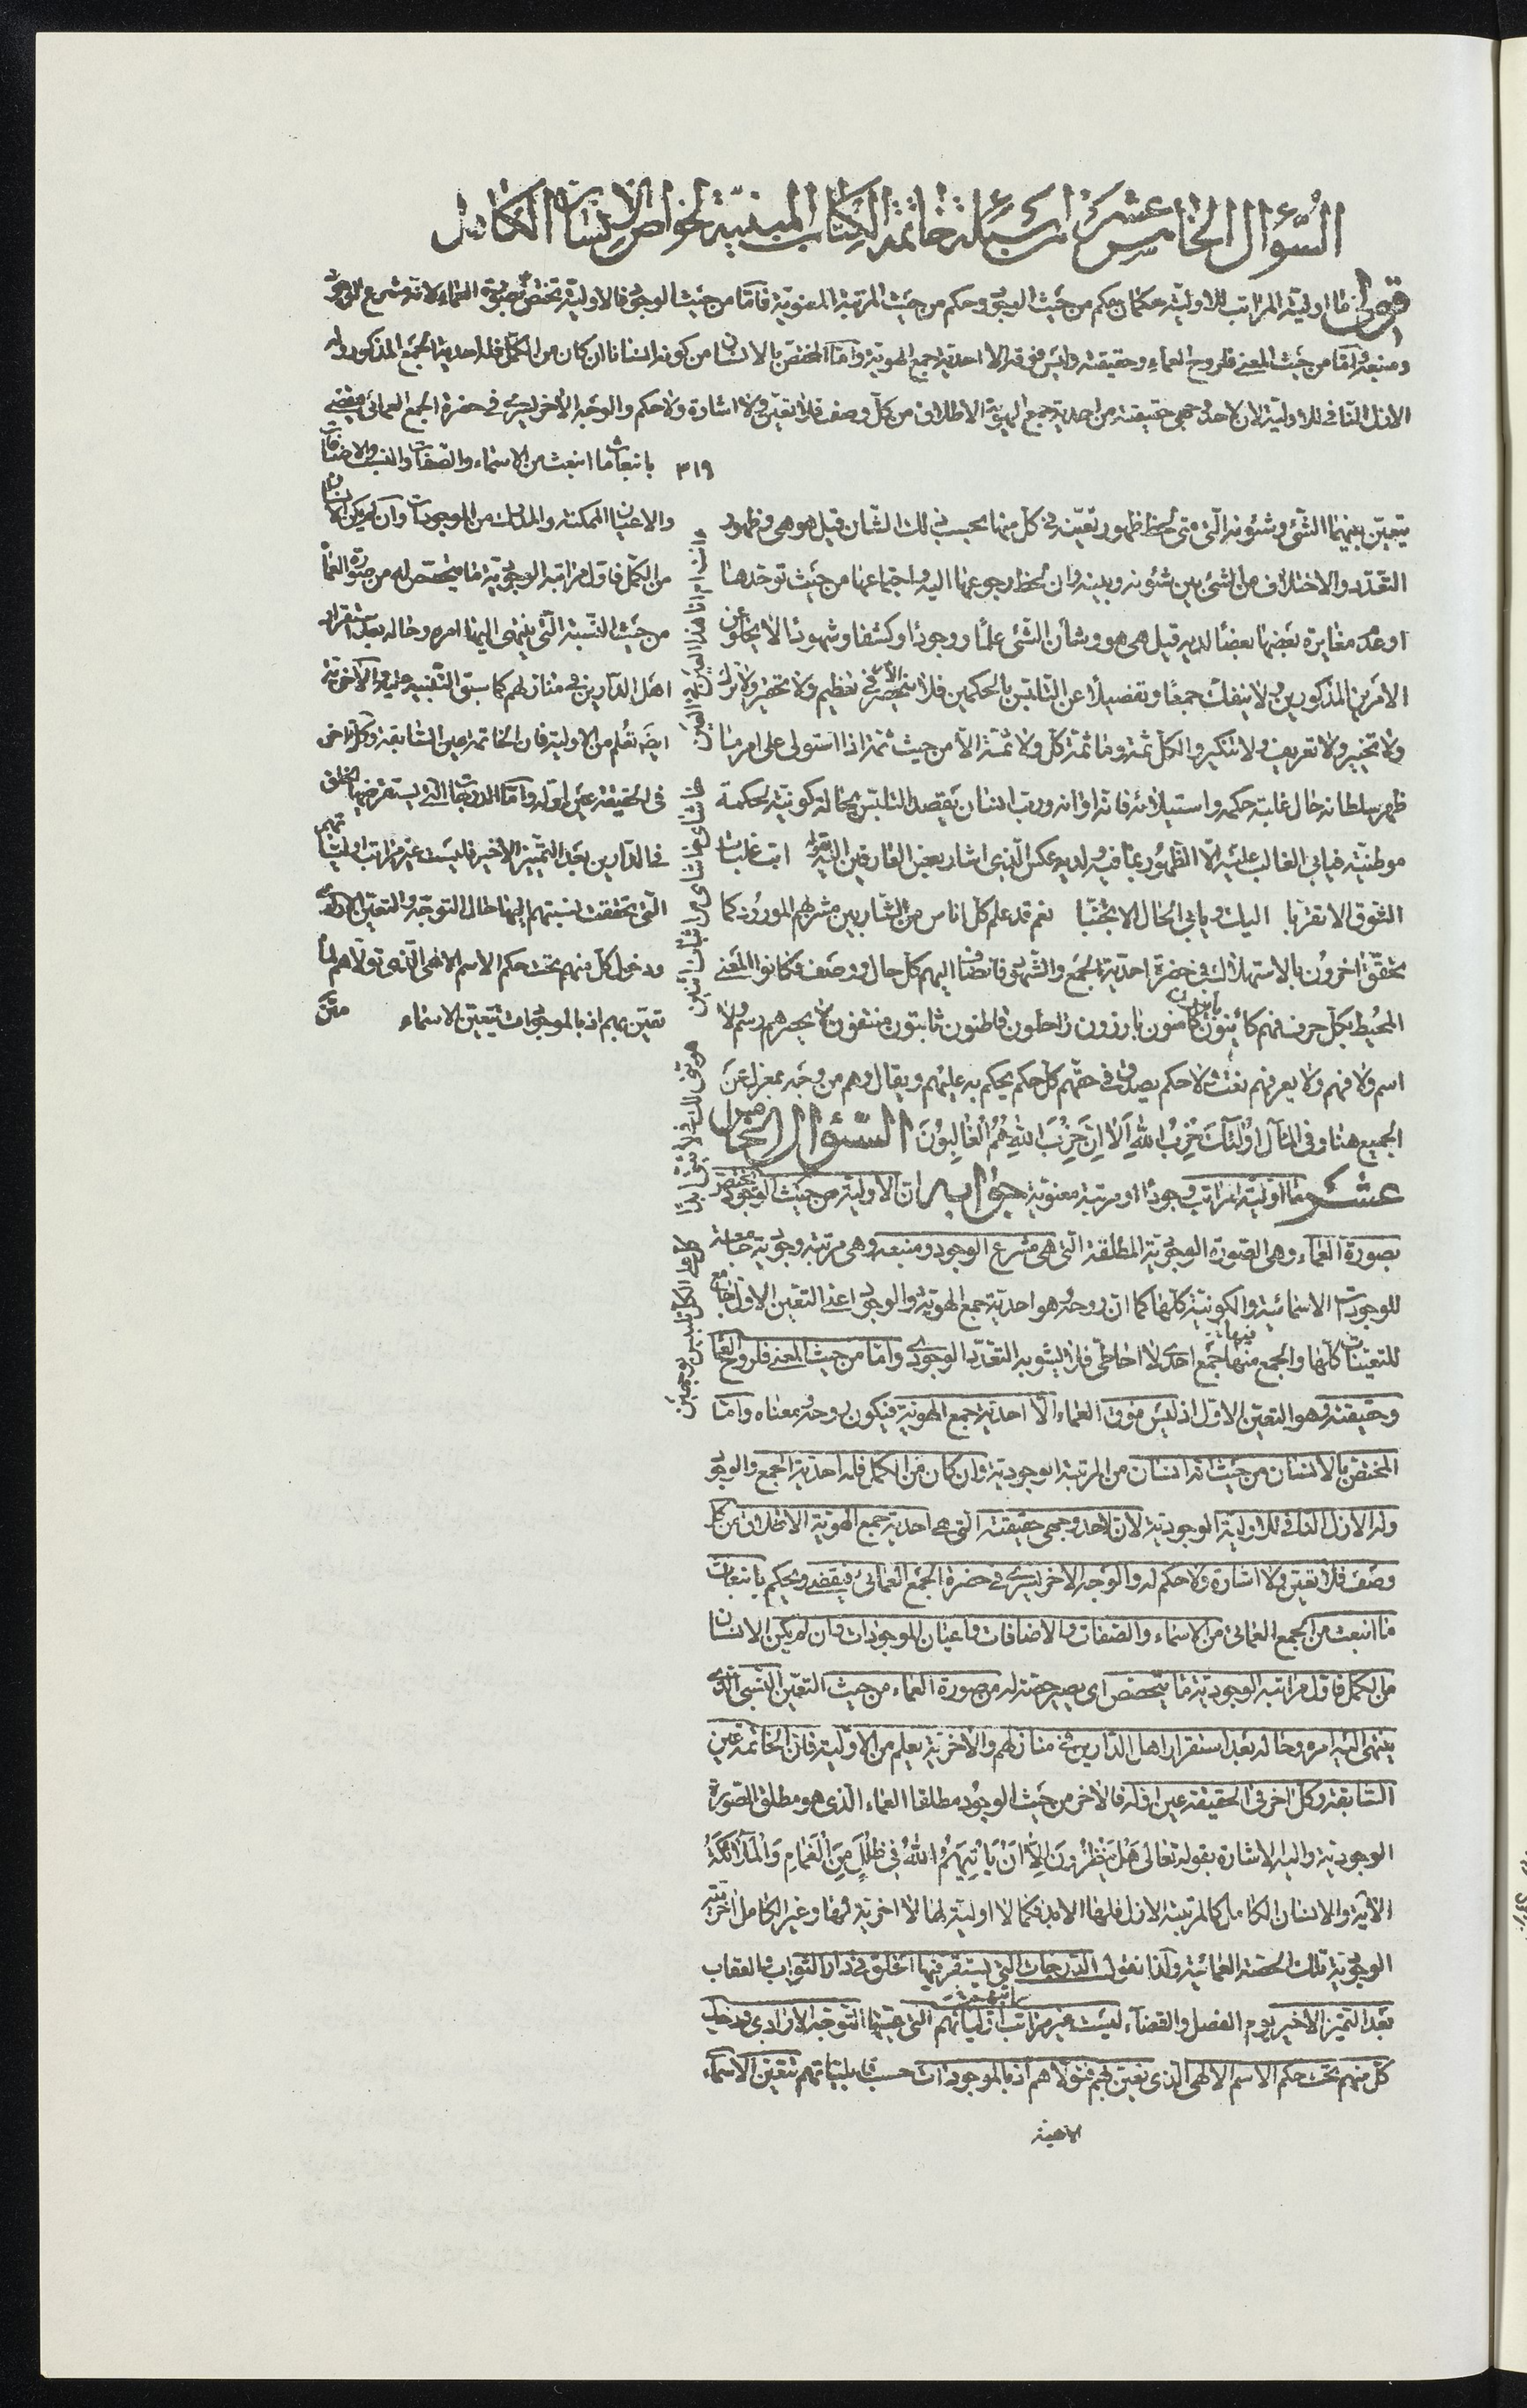 السؤال الخامس عشر من اسئلة خاتمة الكتاب المبنية لخواص الانسان الكامل
قوله ما اولية المراتب للاولية حكمان حكم من حيث الوجود وحكم من حيث المرتبة المعنوية فاما من حيث الوجود فالاولية تختص بصورة العماء لانه مشرع الوجود
ومنبعه واما من حيث المعنى فلروح العماء وحقيقته وليس فوقه الا احدية جمع الهوية واما المختص بالانسان من كونه انسانا ان كان من الكمل فله احدية الجمع المذكور وله
الازل النافي للاولية لان لاحد وجهي حقيقته من احدية جمع الهوية الاطلاق من كل وصف فلا تعين ولا اشارة ولا حكم والوجه الاخر يسرى في حضرة الجمع العمائي فيقضى
بانبعاث ما انبعث من الاسماء والصفات والنسب والاضافات
٣١٩
والاعيان الممكنة والمدارك من الموجودات وان لم يكن الانسان
من الكمل فاول مراتبه الوجودية ما يتخصص له من صورة العماء
من حيث النسبة التي ينتهى اليها امره وحاله بعد استقرار
اهل الدارين في منازلهم كما سبق التنبيه عليه والآخرية
ايضا تعلم من الاولية فان الخاتمة عين السابقة وكل آخر
في الحقيقة عين اوله واما الدرجات التي يستقر فيها الخلق
في الدارين بعد التمييز الاخير فليست غير مراتب اولياتهم
التي تحققت نسبتهم اليها حال التوجه والتعين الارادى
ودخول كل منهم تحت حكم الاسم الالهى الذى تولاهم لما
تعين بهم اذ بالموجودات تتعين الاسماء
يتعين بينهما الشئ وشئونه التى متى لحظ ظهور تعينه في كل منها بحسب ذلك الشان قيل هو هى وظهور
التعدد والاختلاف من الشئ بين شئونه وبينه وان لحظ رجوعها اليه واجتماعها من حيث توحدها
او عدم مغايرة بعضها بعضا لديه قيل هى هو وشان الشئ علما ووجودا وكشفا وشهودا لا يخلو عن
الامرين المذكورين ولا ينفك جمعا وتفصيلا عن التلبس بالحكمين فلا ينحصر الامر في تعظيم ولا تحقير ولا ترك
ولا تخيير ولا تعريف ولا تنكير والكل ثمة وما ثمة كل ولا ثمة الا من حيث ثمة اذا استولى على امر ما
ظهر سلطانه حال غلبة حكمه واستيلائه فانه اوانه ورب انسان يقصد التلبس بحالة كونية لحكمة
موطنية فيابى الغالب عليه الا الظهور بما فيه ولديه عكس الذى اشار بعض العارفين اليه بقوله ابت غلبات
الشوق الا تقربا اليك ويابى الحال الا تجنبا نعم قد علم كل اناس من الشاربين مشربهم المورود كما
تحقق اخرون بالاستهلاك في حضرة احدية الجمع والشهود فانضاف اليهم كل حال ووصف فكانوا المعنى
المحيط بكل حرف فهم كائنون بائنون كامنون بارزون راحلون قاطنون ثابتون منتفون لا يحصرهم رسم ولا
اسم ولا فهم ولا يعرفهم نعت ولا حكم يصدق في حقهم كل حكم يحكم به عليهم ويقال وهم من وجه بمعزل عن
الجميع هنا وفي المآل اولئك حزب الله الا ان حزب الله هم الغالبون السؤال الخامس
عشر ما اولية المراتب وجودا او مرتبة معنوية جوابه ان الاولية من حيث الوجود تختص
بصورة العماء وهى الصورة الوجودية المطلقة التى هى مشرع الوجود ومنبعه وهى مرتبة وجودية جامعة
للوجودات الاسمائية والكونية كلها كما ان روحه هو احدية جمع الهوية والوجود اعنى التعين الاول جامع
للتعينات كلها والجمع منها فيها جمع احدى لا احاطى فلا يشوبه التعدد الوجودى واما من حيث المعنى فلروح العماء
وحقيقته وهو التعين الاول اذ ليس فوق العماء الا احدية جمع الهوية فيكون روحه ومعناه واما
المختص بالانسان من حيث انه انسان من المرتبة الوجودية وان كان من الكمل فله احدية الجمع والوجود
وله الازل النافى للاولية الوجودية لان لاحد وجهى حقيقته التى هى احدية جمع الهوية الاطلاق من كل
وصف فلا تعين ولا اشارة ولا حكم له والوجه الاخر يسرى في حضرة الجمع العمائى فيقضى ويحكم بانبعاث
ما انبعث من الجمع العمائى من الاسماء والصفات والاضافات واعيان الموجودات وان لم يكن الانسان
من الكمل فاول مراتبه الوجودية ما يتخصص اى يصير حصة له من صورة العماء من حيث التعين النسبى الذى
ينتهى اليه امره وحاله بعد استقرار اهل الدارين في منازلهم والآخرية يعلم من الاولية فان الخاتمة عين
السابقة وكل اخر في الحقيقة عين اوله فالآخر من حيث الوجود مطلقا العماء الذى هو مطلق الصورة
الوجودية واليه الاشارة بقوله تعالى هل ينظرون الا ان ياتيهم الله في ظلل من الغمام والملائكة
الآية والانسان الكامل كما لمرتبته الازل فلها الابد فكما لا اولية لها لا اخرية لها وغير الكامل آخريته
الوجودية تلك الحصة العمائية ولذا نقول الدرجات التى يستقر فيها الخلق في دار الثواب والعقاب
بعد التميز الاخير يوم الفصل والقضاء ليست غير مراتب اولياتهم التى عينها التوجه الارادى ودخل
كل منهم تحت حكم الاسم الالهى الذى تعين بهم فتولاهم اذ بالموجودات حسب قابلياتهم تتعين الاسماء
الالهية